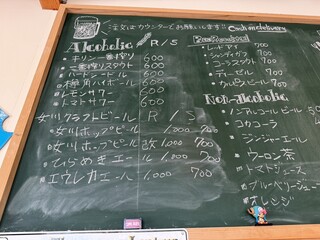 注文はカウンターでお願いします!! Cash on delivery
Alcoholic R / S
・キリン一番搾り 600
・一番搾りスタウト 600
・ハートランドビール 600
・角ハイボール 600
・レモンサワー 600
・トマトサワー 600
女川クラフトビール R / S
・女川ホップビール 1,000 700
・女川ホップビール 改 1,000 700
・ひらめきエール 1,000 700
・エウレカエール 1,000 700
・レッドアイ 700
・シャンディガフ 700
・コークスタウト 700
・ディーゼル 700
・カルピスビール 700
Non-alcoholic
・ノンアルコールビール
・コカコーラ
・ジンジャーエール
・ウーロン茶
・トマトジュース
・ブルーベリージュース
・オレンジ